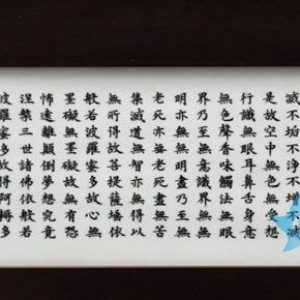 滅不垢不淨不增不減
是故空中無色無受想
行識無眼耳鼻舌身意
無色聲香味觸法無眼
界乃至無意識界無無
明亦無無明盡乃至無
老死亦無老死盡無苦
集滅道無智亦無得以
無所得故菩提薩埵依
般若波羅蜜多故心無
罣礙無罣礙故無有恐
怖遠離顛倒夢想究竟
涅槃三世諸佛依般若
波羅蜜多故得阿耨多